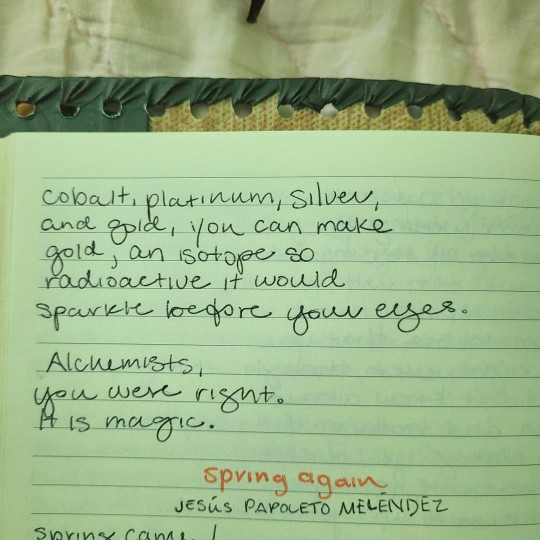 cobalt, platinum, silver,
and gold, you can make
gold, an isotope so
radioactive it would
sparkle before your eyes.
Alchemists,
you were right.
It is magic.
spring again
JESÚS PAPOLETO MELÉNDEZ
spring came /